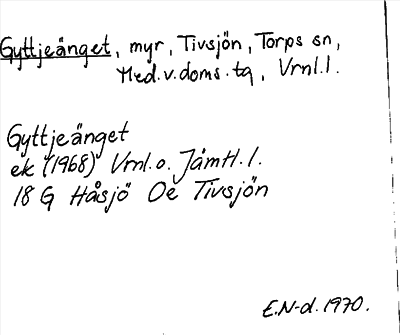 Gyttjeänget, myr, Tivsjön, Torps sn,
Med.v.doms.tg, Vrnl.l.
Gyttjeänget
ek (1968) Vrnl.o. Jämtl.l.
18 G Håsjö Oe Tivsjön
E.N-d. 1970.